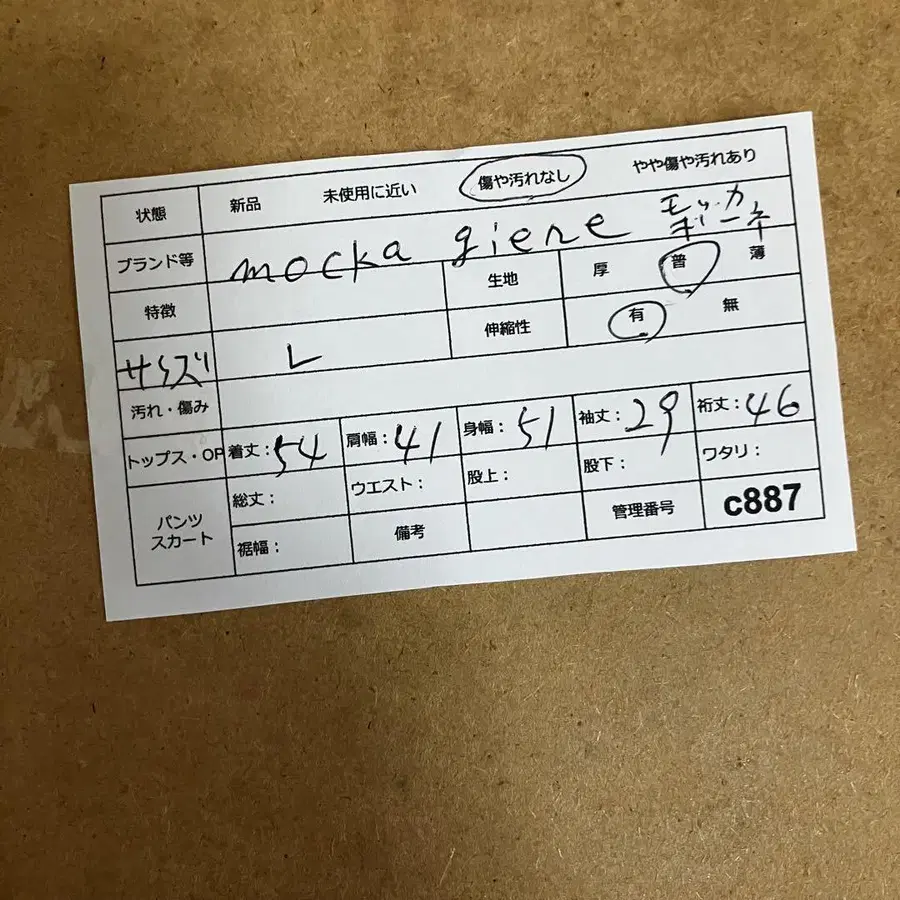 状態 新品 未使用に近い 傷や汚れなし やや傷や汚れあり
ブランド等 mocka giene モッカ ギーネ
特徴 生地 厚 普 薄
サイズ L 伸縮性 有 無
汚れ・傷み
トップス・OP 着丈：54 肩幅：41 身幅：51 袖丈：29 裄丈：46
パンツ スカート 総丈： ウエスト： 股上： 股下： ワタリ：
裾幅： 備考 管理番号 c887